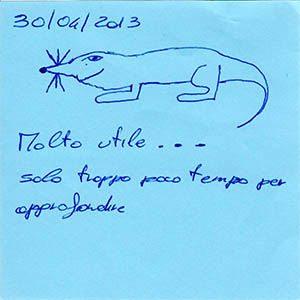 30/04/2013
Molto utile...
solo troppo poco tempo per
approfondire